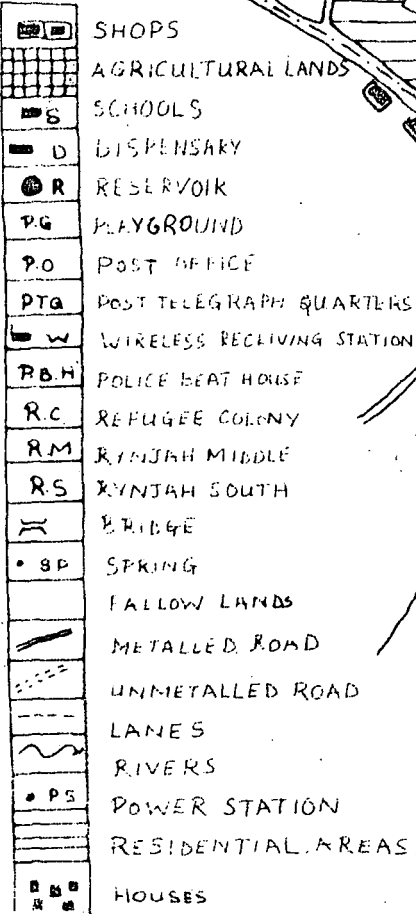 SHOPS
AGRICULTURAL LANDS
S SCHOOLS
D DISPENSARY
R RESERVOIR
P.G PLAYGROUND
P.O POST OFFICE
PTQ POST TELEGRAPH QUARTERS
W WIRELESS RECEIVING STATION
P.B.H POLICE BEAT HOUSE
R.C REFUGEE COLONY
R.M RYNJAH MIDDLE
R.S RYNJAH SOUTH
BRIDGE
SP SPRING
FALLOW LANDS
METALLED ROAD
UNMETALLED ROAD
LANES
RIVERS
PS POWER STATION
RESIDENTIAL AREAS
HOUSES